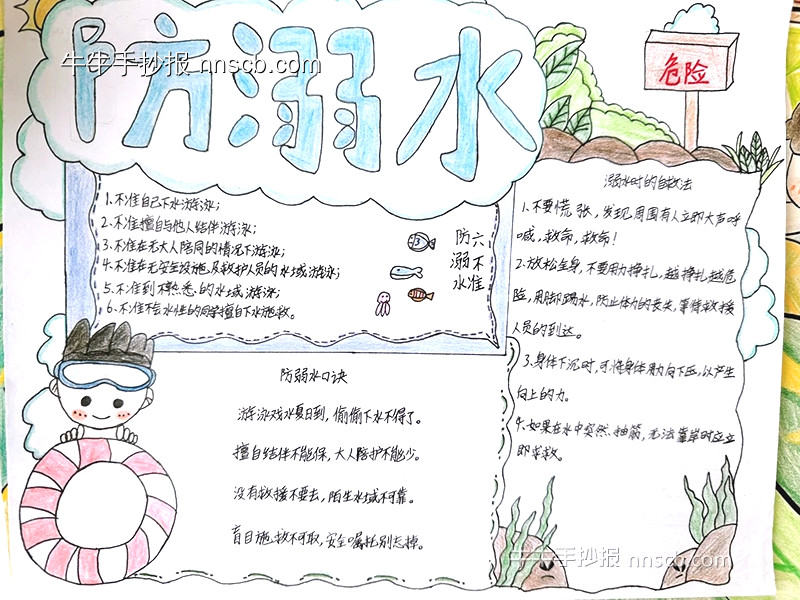 防溺水
牛牛手抄报 nnscb.com
危险
1.不准自己下水游泳；
2.不准擅自与他人结伴游泳；
3.不准在无大人陪同的情况下游泳；
4.不准在无安全设施及救护人员的水域游泳；
5.不准到不熟悉的水域游泳；
6.不准不会水性的同学擅自下水施救。
防溺水
六不准
防弱水口诀
游泳戏水夏日到，偷偷下水不得了。
擅自结伴不能保，大人陪护不能少。
没有救援不要去，陌生水域不可靠。
盲目施救不可取，安全嘱托别忘掉。
溺水时的自救法
1.不要慌张，发现周围有人立即大声呼
喊，救命，救命！
2.放松全身，不要用力挣扎，越挣扎越危
险，用脚踢水，防止体力的丧失，等待救援
人员的到达。
3.身体下沉时，可将身体用力向下压，以产生
向上的力。
4.如果在水中突然抽筋，无法靠岸时立立
即求救。
牛牛手抄报 nnscb.com